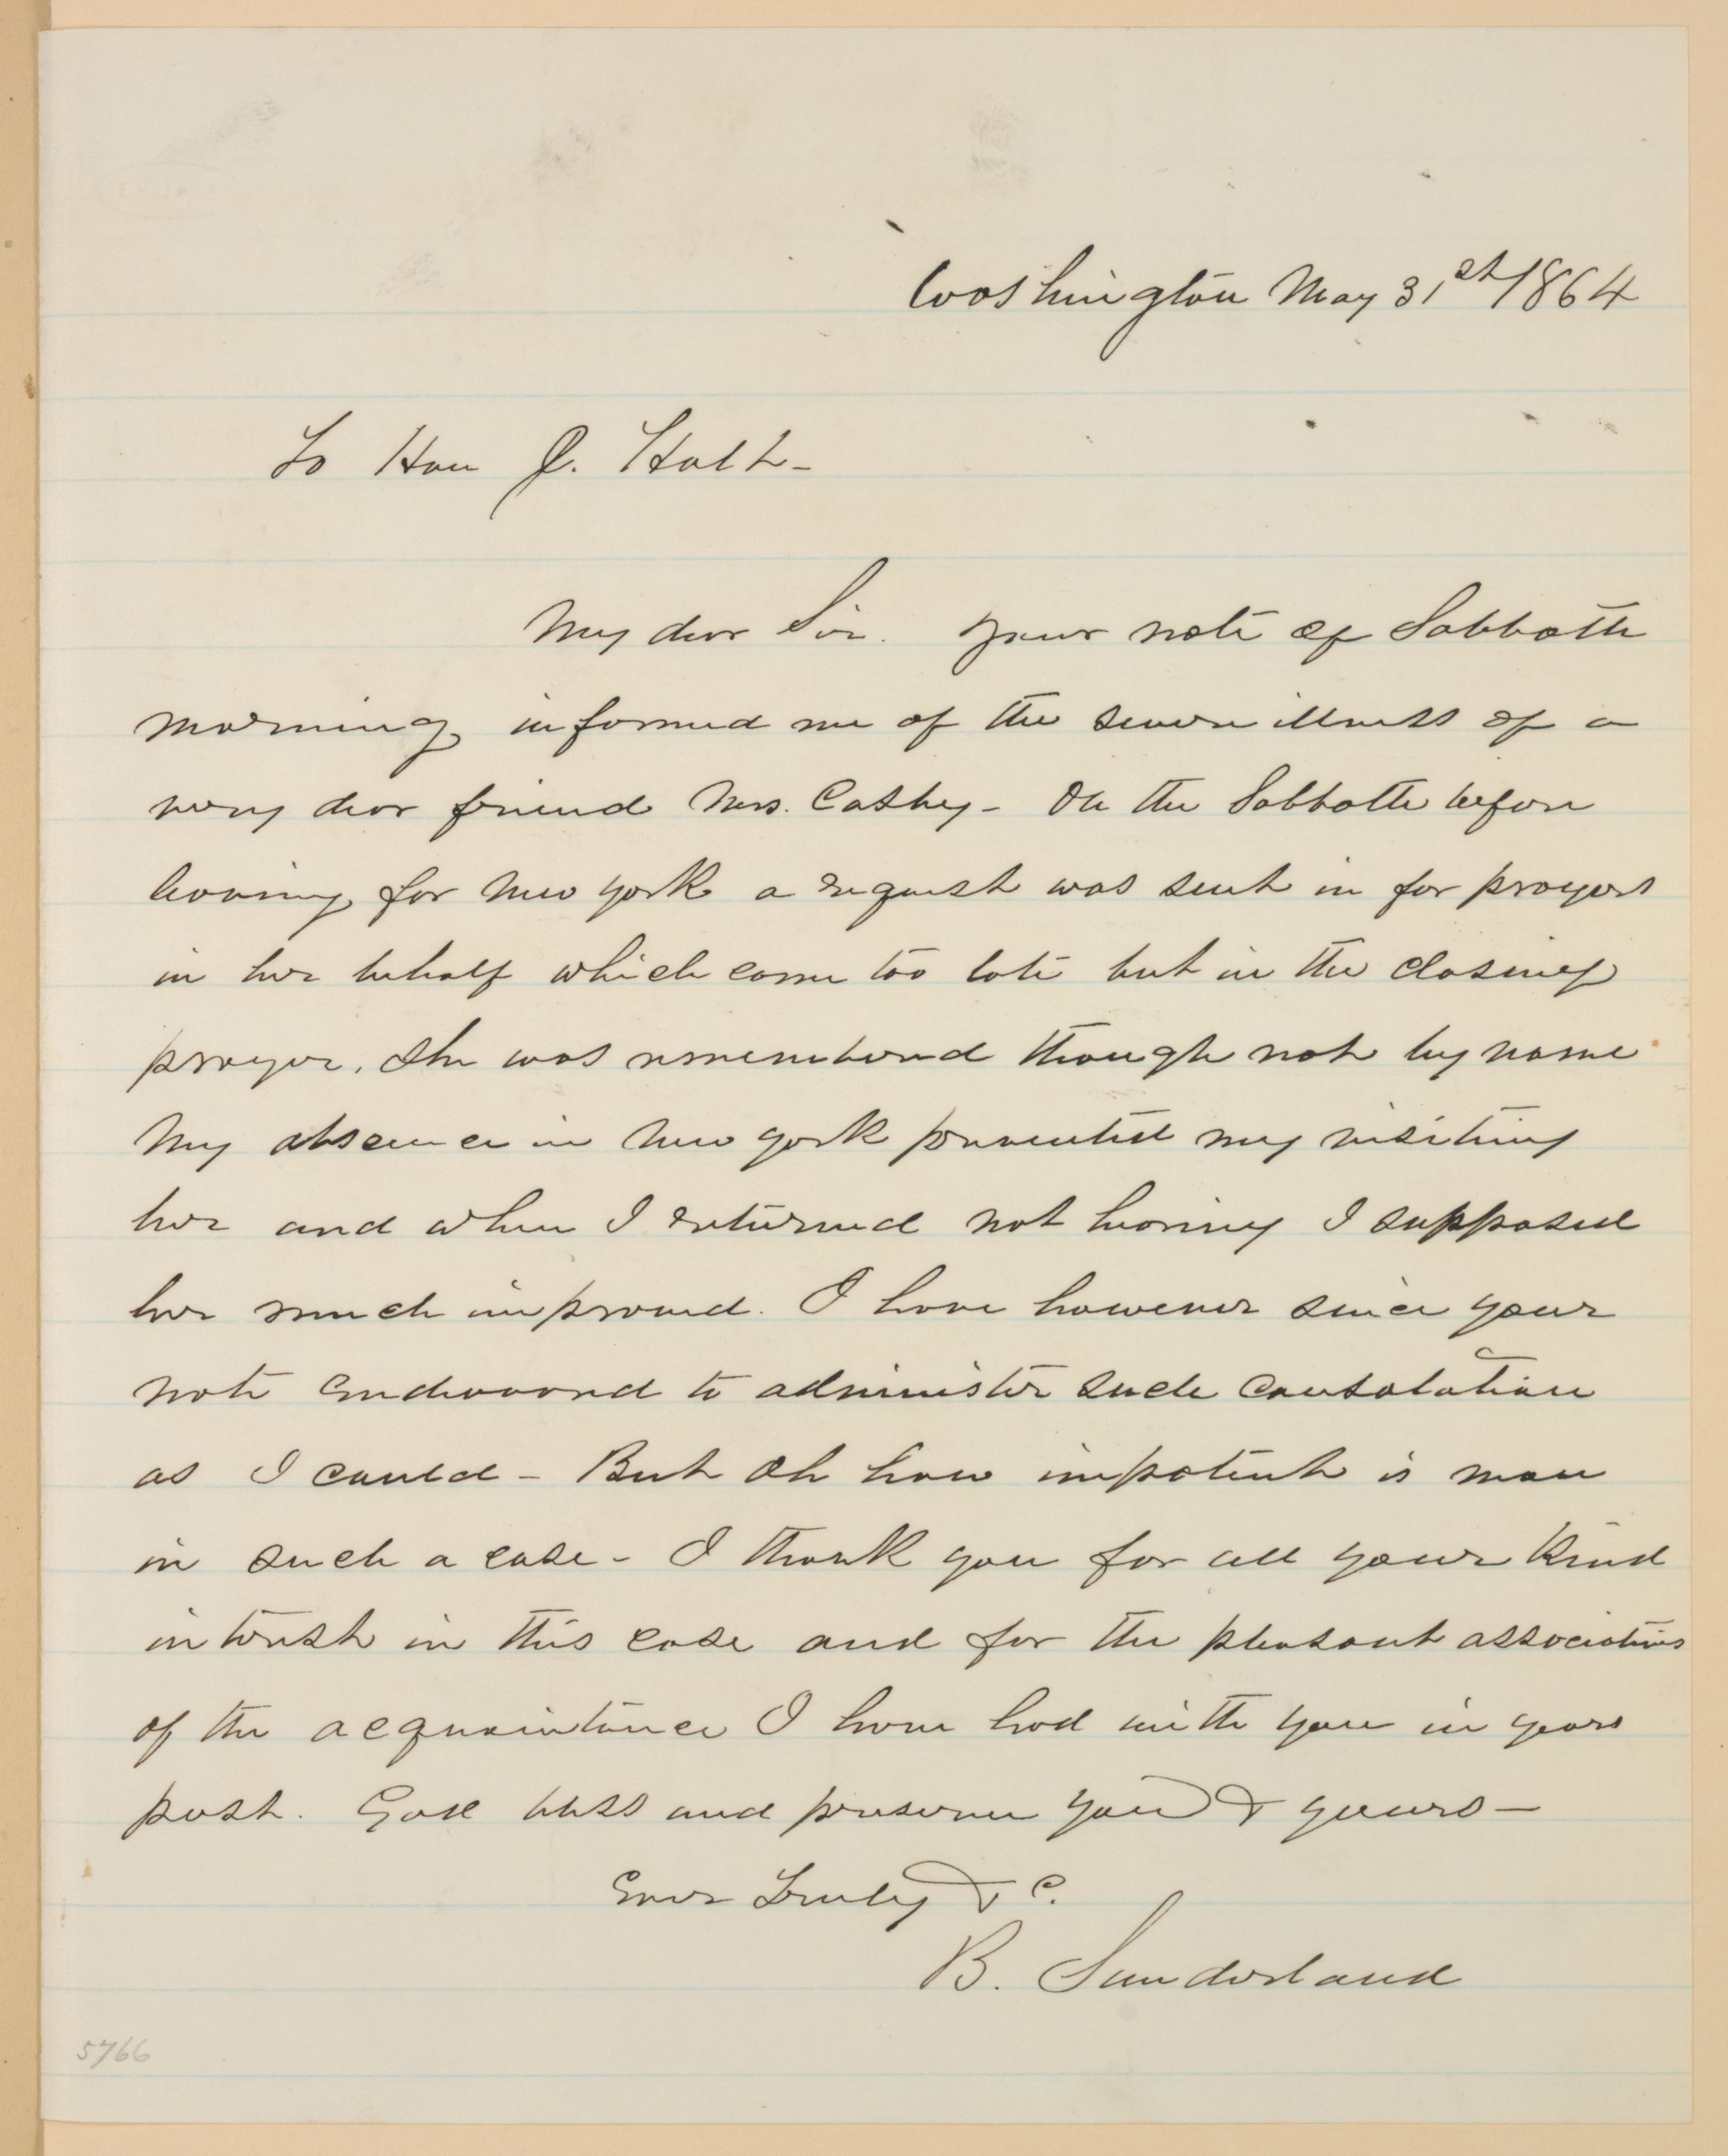 Washington May 31st 1864
To Hon J. Holt-
My dear Sir. Your note of Sabbath
morning informed me of the severe illness of a
very dear friend Mrs. Cathey- On the Sabbath before
leaving for New York a request was sent in for prayers
in her behalf which came too late but in the closing
prayer, she was remembered though not by name
My absence in New York prevented my visiting
her and when I returned not hearing I supposed
her much improved. I have however since your
note endeavored to administer such consolation
as I could - But Oh how impotent is man
in such a case - I thank you for all your kind
interest in this case and for the pleasant associations
of the acquaintance I have had with you in years
past. God bless and preserve you & yours -
Ever Truly & C.
B. Sunderland
5766